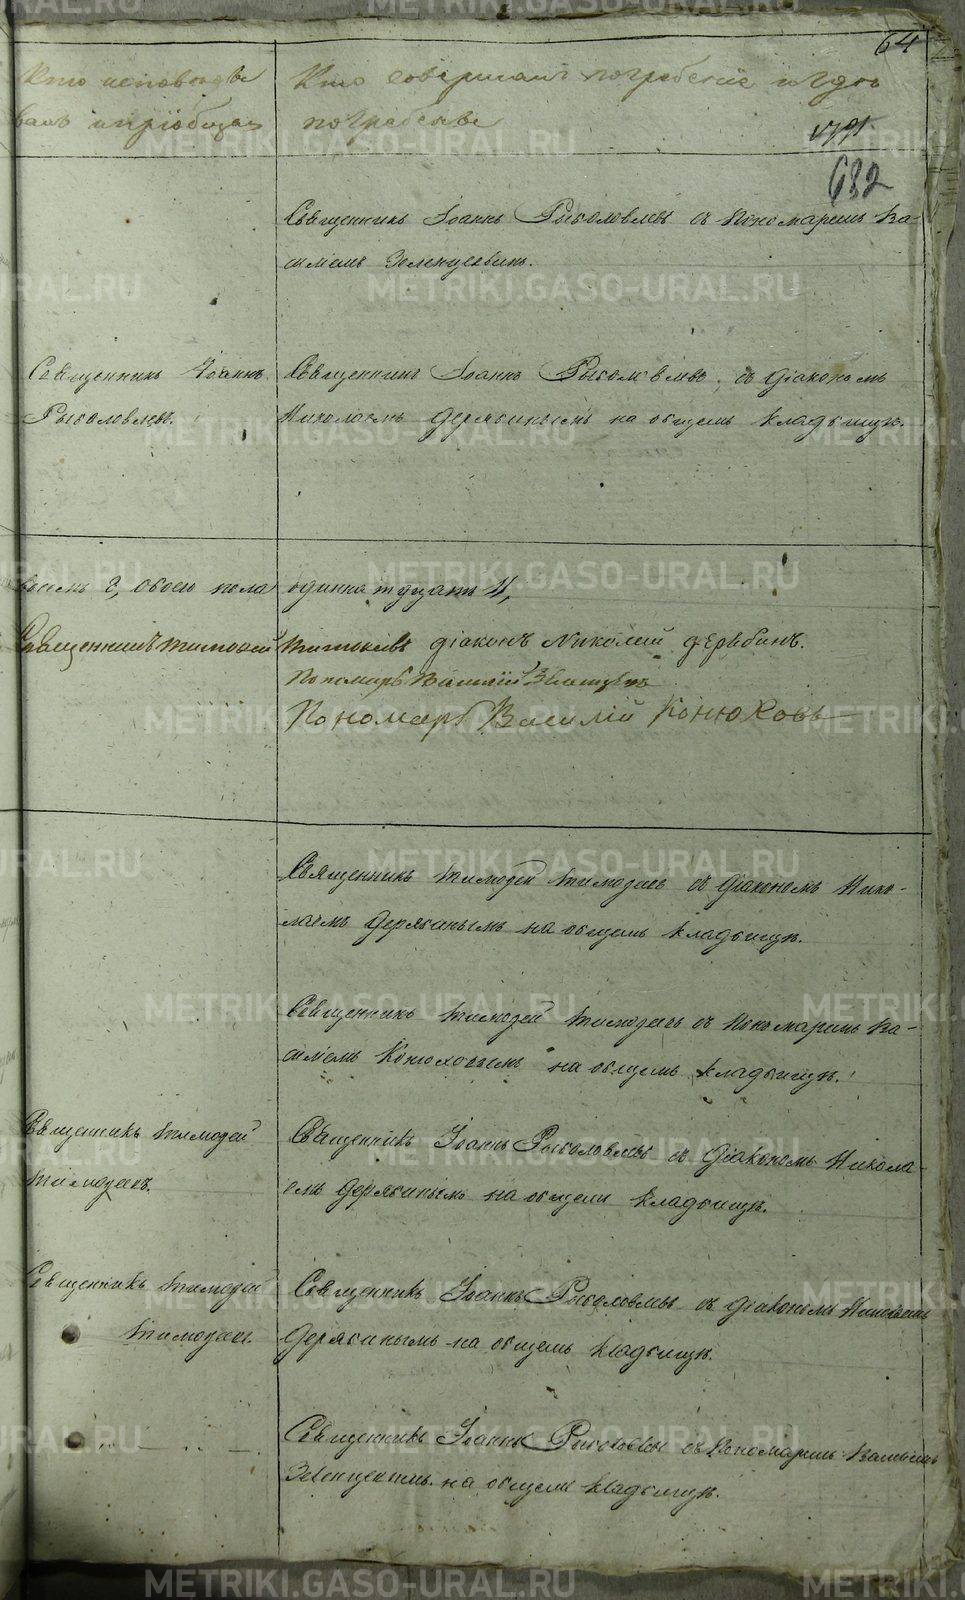 64
Кто исповѣды
валъ и пріобщал
Кто совершалъ погребеніе и гдѣ
погребены
682
Священникъ Іоаннъ Рыболовлевъ съ Пономаремъ Ва-
силіемъ
Священникъ Іоаннъ
Рыболовлевъ.
Священникъ Іоаннъ Рыболовлевъ съ Діакономъ
Николаемъ Дерябинымъ на общемъ кладбищѣ.
обоего пола одиннатцать
Священникъ Тимофей Тимофѣевъ діаконъ Николай Дерябинъ.
Пономарь Василій
Пономарь Василій Конюховъ
Священникъ Тимофей Тимофеевъ съ Діакономъ Нико-
лаемъ Дерябинымъ на общемъ кладбищѣ.
Священникъ Тимофей Тимофеевъ съ Пономаремъ Ва-
силіемъ Конюховымъ на общемъ кладбищѣ.
Священникъ Тимофей
Тимофеевъ.
Священникъ Іоаннъ Рыболовлевъ съ Діакономъ Никола-
емъ Дерябинымъ на общемъ кладбищѣ.
Священникъ Тимофей
Тимофеевъ.
Священникъ Іоаннъ Рыболовлевъ съ Діакономъ Николаемъ
Дерябинымъ на общемъ кладбищѣ.
Священникъ Іоаннъ Рыболовлевъ съ Пономаремъ Василіемъ
на общемъ кладбищѣ.
METRIKI.GASO-URAL.RU